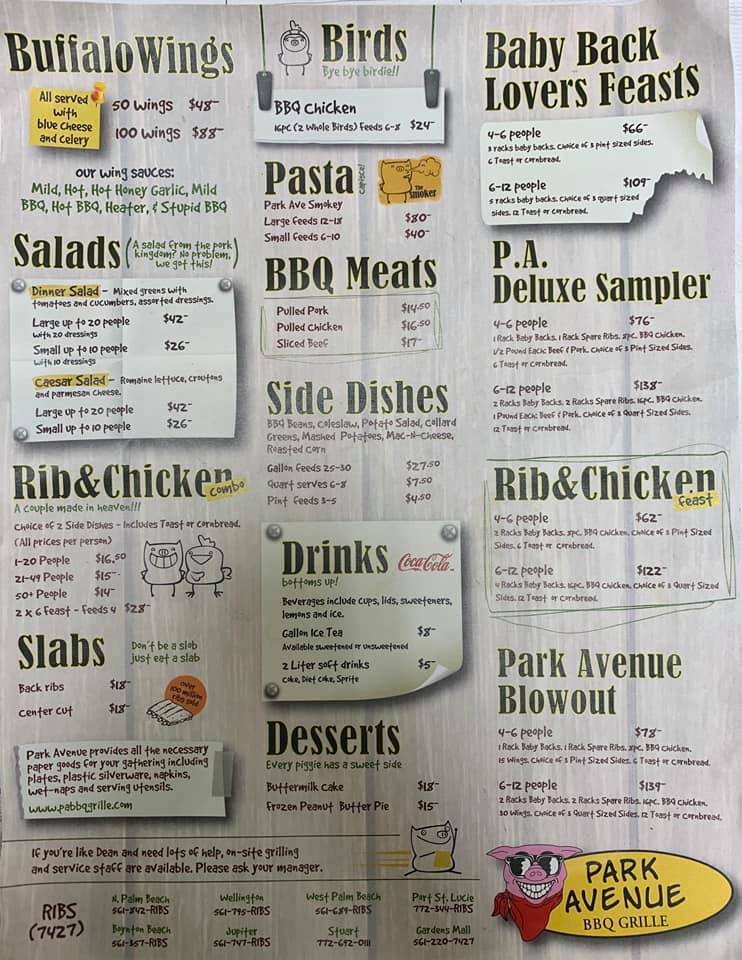 Buffalo Wings
All served
with
blue cheese
and celery
50 wings $48-
100 wings $88-
our wing sauces:
Mild, Hot, Hot Honey Garlic, Mild
BBQ, Hot BBQ, Heater, & Stupid BBQ
Salads
(A salad from the pork
kingdom? No problem,
we got this!)
Dinner Salad - Mixed greens with
tomatoes and cucumbers, assorted dressings.
Large up to 20 people $42-
with 20 dressings
Small up to 10 people $26-
with 10 dressings
Caesar Salad - Romaine lettuce, croutons
and parmesan cheese.
Large up to 20 people $42-
Small up to 10 people $26-
Rib&Chicken
combo
A couple made in heaven!!!
Choice of 2 Side Dishes - Includes Toast or Cornbread.
(All prices per person)
1-20 People $16.50
21-49 People $15-
50+ People $14-
2 x 6 Feast - Feeds 4 $28-
Slabs
Don't be a slob
just eat a slab
Back ribs $18-
Center cut $18-
over
100 million
ribs sold
Park Avenue provides all the necessary
paper goods for your gathering including
plates, plastic silverware, napkins,
wet-naps and serving utensils.
www.pabbqgrille.com
Birds
Bye bye birdie!!
BBQ Chicken
16pc (2 Whole Birds) Feeds 6-8 $24-
Pasta
capisce!
The
Smoker
Park Ave Smokey
Large feeds 12-18 $80-
Small feeds 6-10 $40-
BBQ Meats
Pulled Pork $14.50
Pulled Chicken $16.50
Sliced Beef $17-
Side Dishes
BBQ Beans, Coleslaw, Potato Salad, Collard
Greens, Mashed Potatoes, Mac-N-Cheese,
Roasted Corn
Gallon feeds 25-30 $27.50
Quart serves 6-8 $7.50
Pint feeds 3-5 $4.50
Drinks
Coca-Cola
bottoms up!
Beverages include cups, lids, sweeteners,
lemons and ice.
Gallon Ice Tea $8-
Available sweetened or unsweetened
2 Liter soft drinks $5-
Coke, Diet Coke, Sprite
Desserts
Every piggie has a sweet side
Buttermilk Cake $18-
Frozen Peanut Butter Pie $15-
Baby Back
Lovers Feasts
4-6 people $66-
3 racks baby backs. Choice of 3 pint sized sides.
6 Toast or Cornbread.
6-12 people $109-
5 racks baby backs. Choice of 3 quart sized
sides. 12 Toast or Cornbread.
P.A.
Deluxe Sampler
4-6 people $76-
1 Rack Baby Backs. 1 Rack Spare Ribs. 8pc. BBQ Chicken.
1/2 Pound Each: Beef & Pork. Choice of 3 Pint Sized Sides.
6 Toast or Cornbread.
6-12 people $138-
2 Racks Baby Backs. 2 Racks Spare Ribs. 16pc. BBQ Chicken.
1 Pound Each: Beef & Pork. Choice of 3 Quart Sized Sides.
12 Toast or Cornbread.
Rib&Chicken
feast
4-6 people $62-
2 Racks Baby Backs. 8pc. BBQ Chicken. Choice of 3 Pint Sized
Sides. 6 Toast or Cornbread.
6-12 people $122-
4 Racks Baby Backs. 16pc. BBQ Chicken. Choice of 3 Quart Sized
Sides. 12 Toast or Cornbread.
Park Avenue
Blowout
4-6 people $78-
1 Rack Baby Backs. 1 Rack Spare Ribs. 8pc. BBQ Chicken.
15 Wings. Choice of 3 Pint Sized Sides. 6 Toast or Cornbread.
6-12 people $139-
2 Racks Baby Backs. 2 Racks Spare Ribs. 16pc. BBQ Chicken.
30 Wings. Choice of 3 Quart Sized Sides. 12 Toast or Cornbread.
If you're like Dean and need lots of help, on-site grilling
and service staff are available. Please ask your manager.
RIBS
(7427)
N. Palm Beach
561-842-RIBS
Wellington
561-795-RIBS
West Palm Beach
561-689-RIBS
Port St. Lucie
772-344-RIBS
Boynton Beach
561-357-RIBS
Jupiter
561-747-RIBS
Stuart
772-692-0111
Gardens Mall
561-220-7427
PARK
AVENUE
BBQ GRILLE